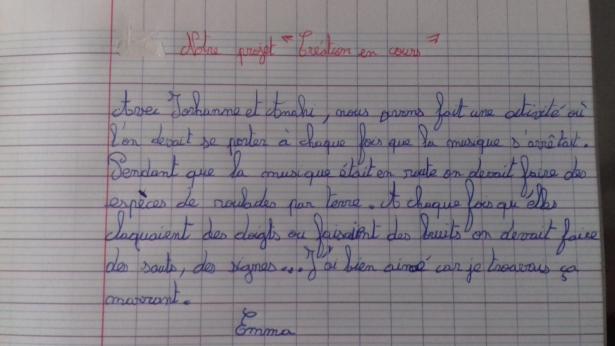 Notre projet "Création en cours"
Avec Johanne et Anahi, nous avons fait une activité où
l'on devait se porter à chaque fois que la musique s'arrêtait.
Pendant que la musique était en route on devait faire des
espèces de roulades par terre. A chaque fois qu'elles
claquaient des doigts ou faisaient des bruits on devait faire
des sauts, des signes... J'ai bien aimé car je trouvais ça
marrant.
Emma